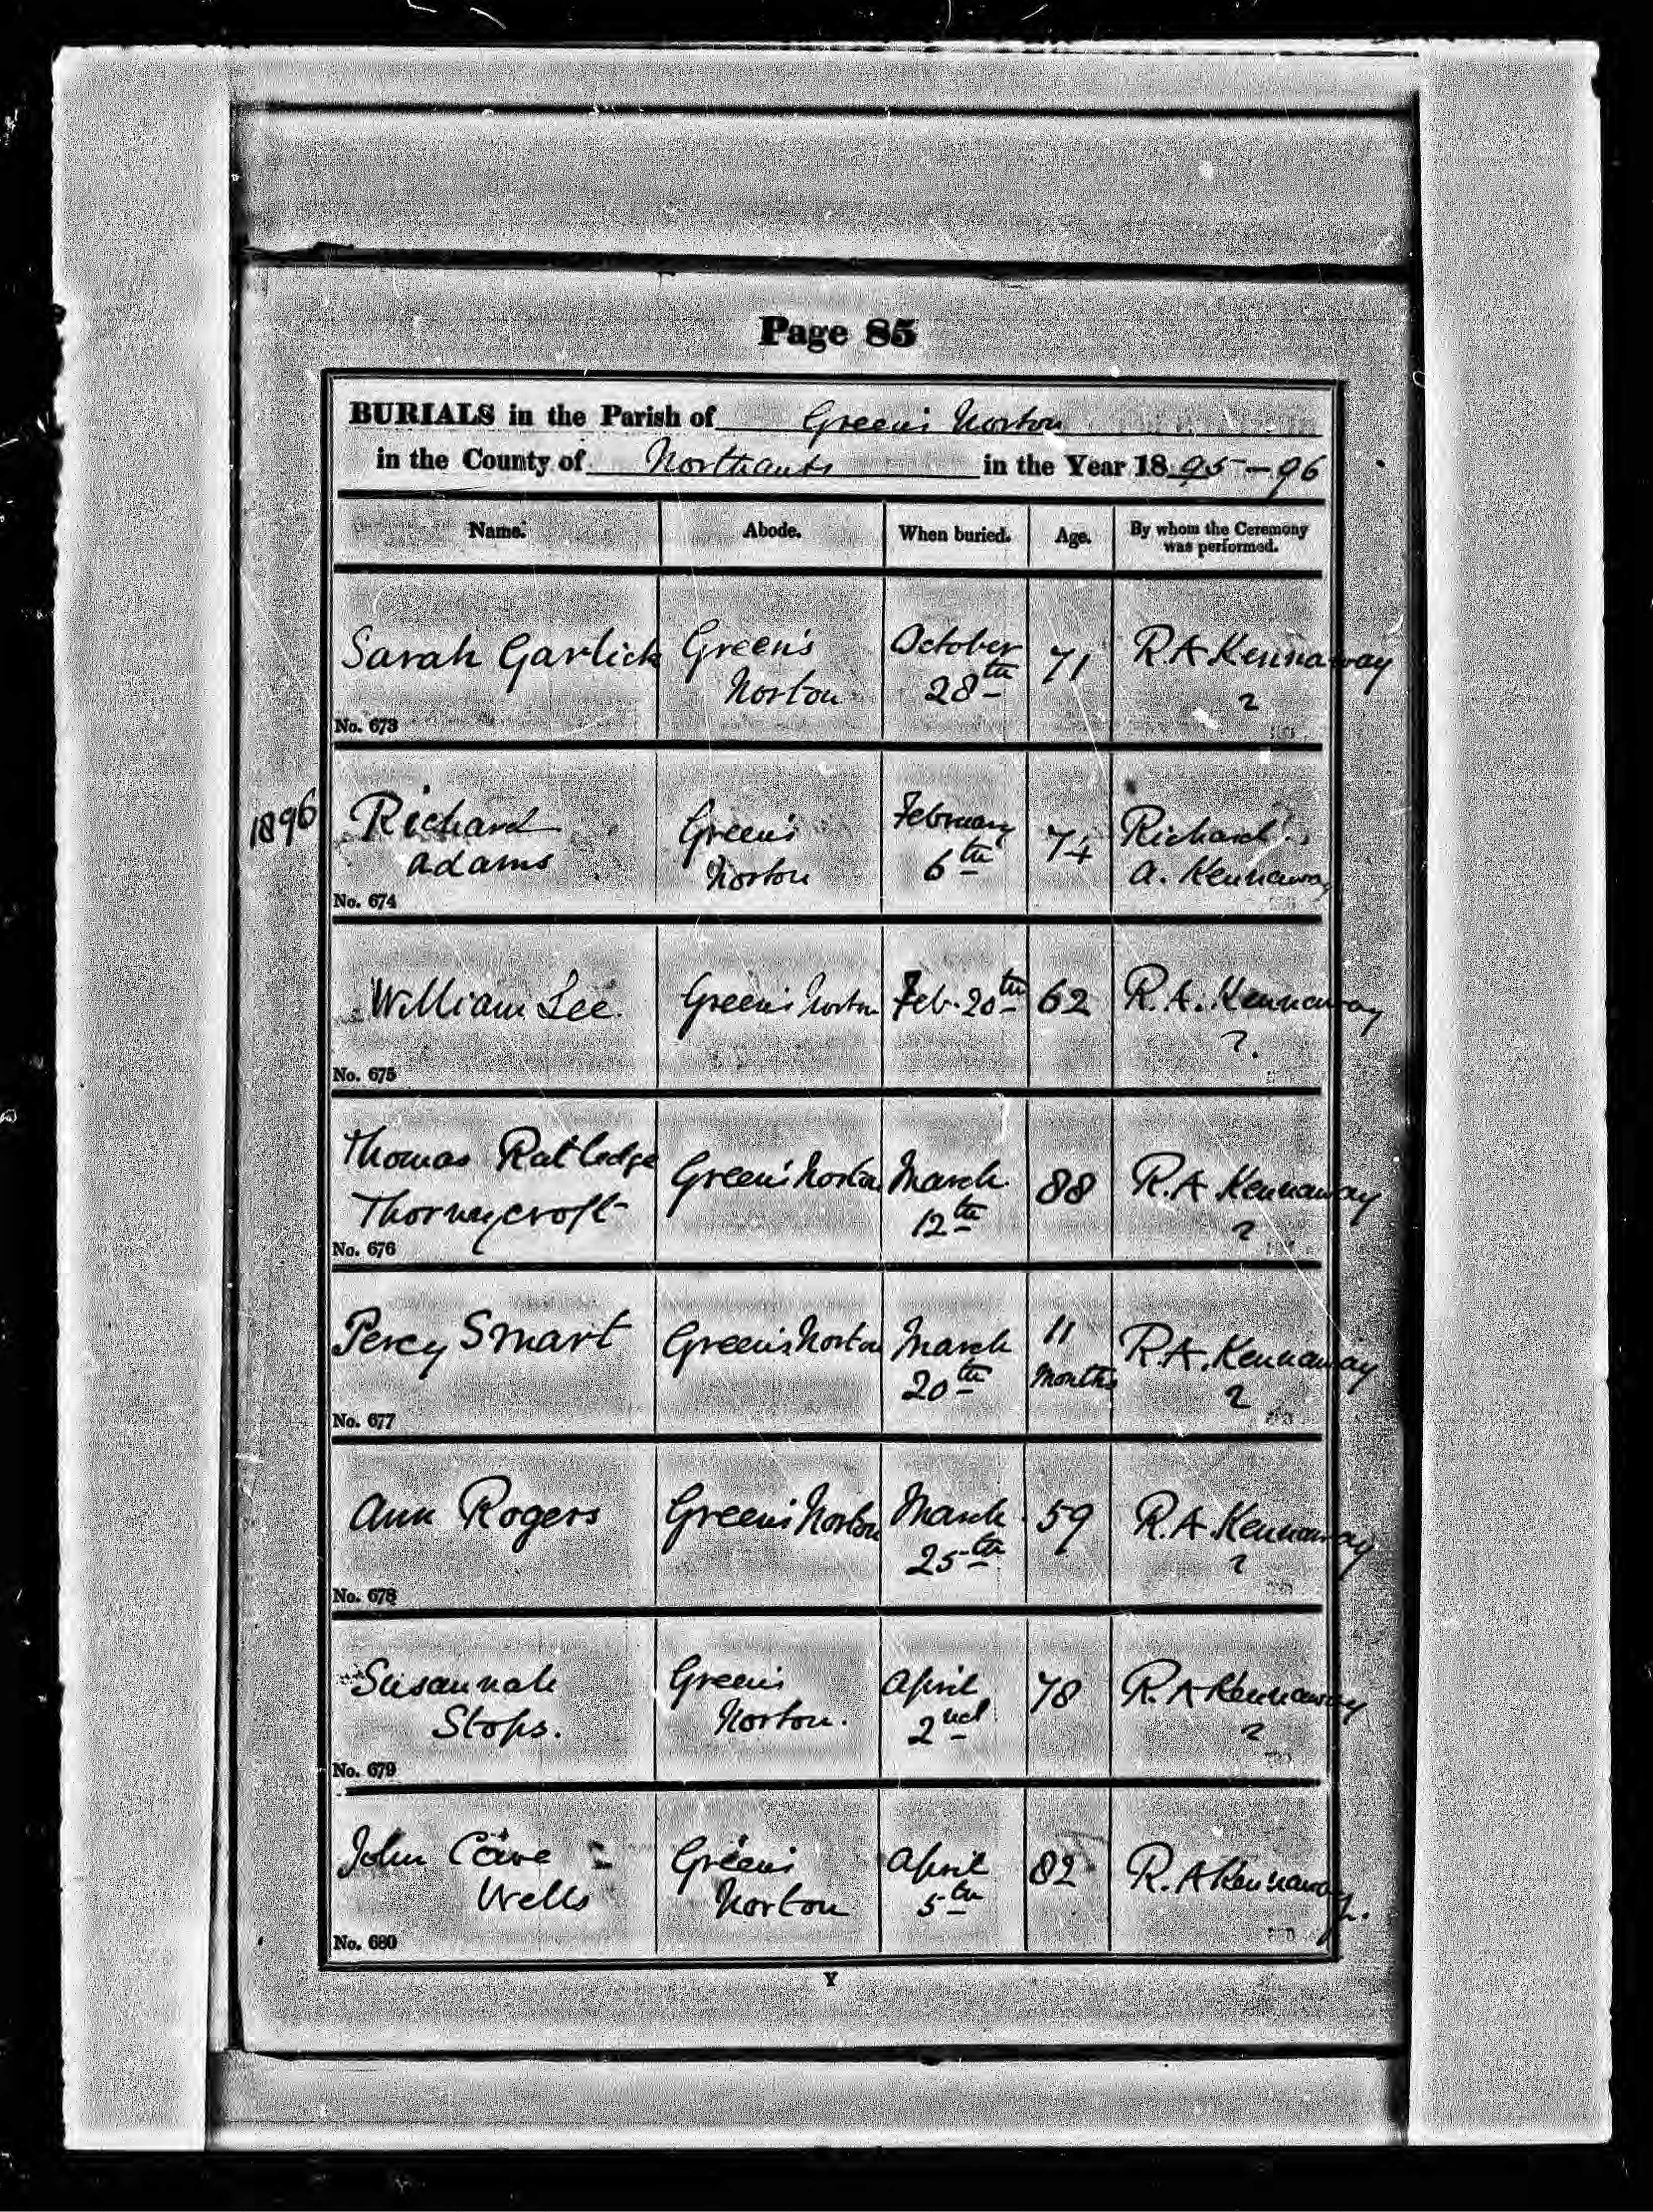 Page 85
BURIALS in the Parish of Green's Norton
in the County of Northants in the Year 1895-96
Name. Abode. When buried. Age. By whom the Ceremony was performed.
Sarah Garlick Green's October 71 R.A Kennaway
Norton 28th
No. 673
1896 Richard Green's February 74 Richard
Adams Norton 6th A. Kennaway
No. 674
William Lee Green's Norton Feb. 20th 62 R.A. Kennaway
No. 675
Thomas Ratledge Green's Norton March 88 R.A Kennaway
Thorneycroft 12th
No. 676
Percy Smart Green's Norton March 11 R.A. Kennaway
20th Months
No. 677
Ann Rogers Green's Norton March 59 R.A. Kennaway
25th
No. 678
Susannah Green's April 78 R.A Kennaway
Stops. Norton. 2nd
No. 679
John Cave Green's April 82 R.A Kennaway
Wells Norton 5th
No. 680
Y